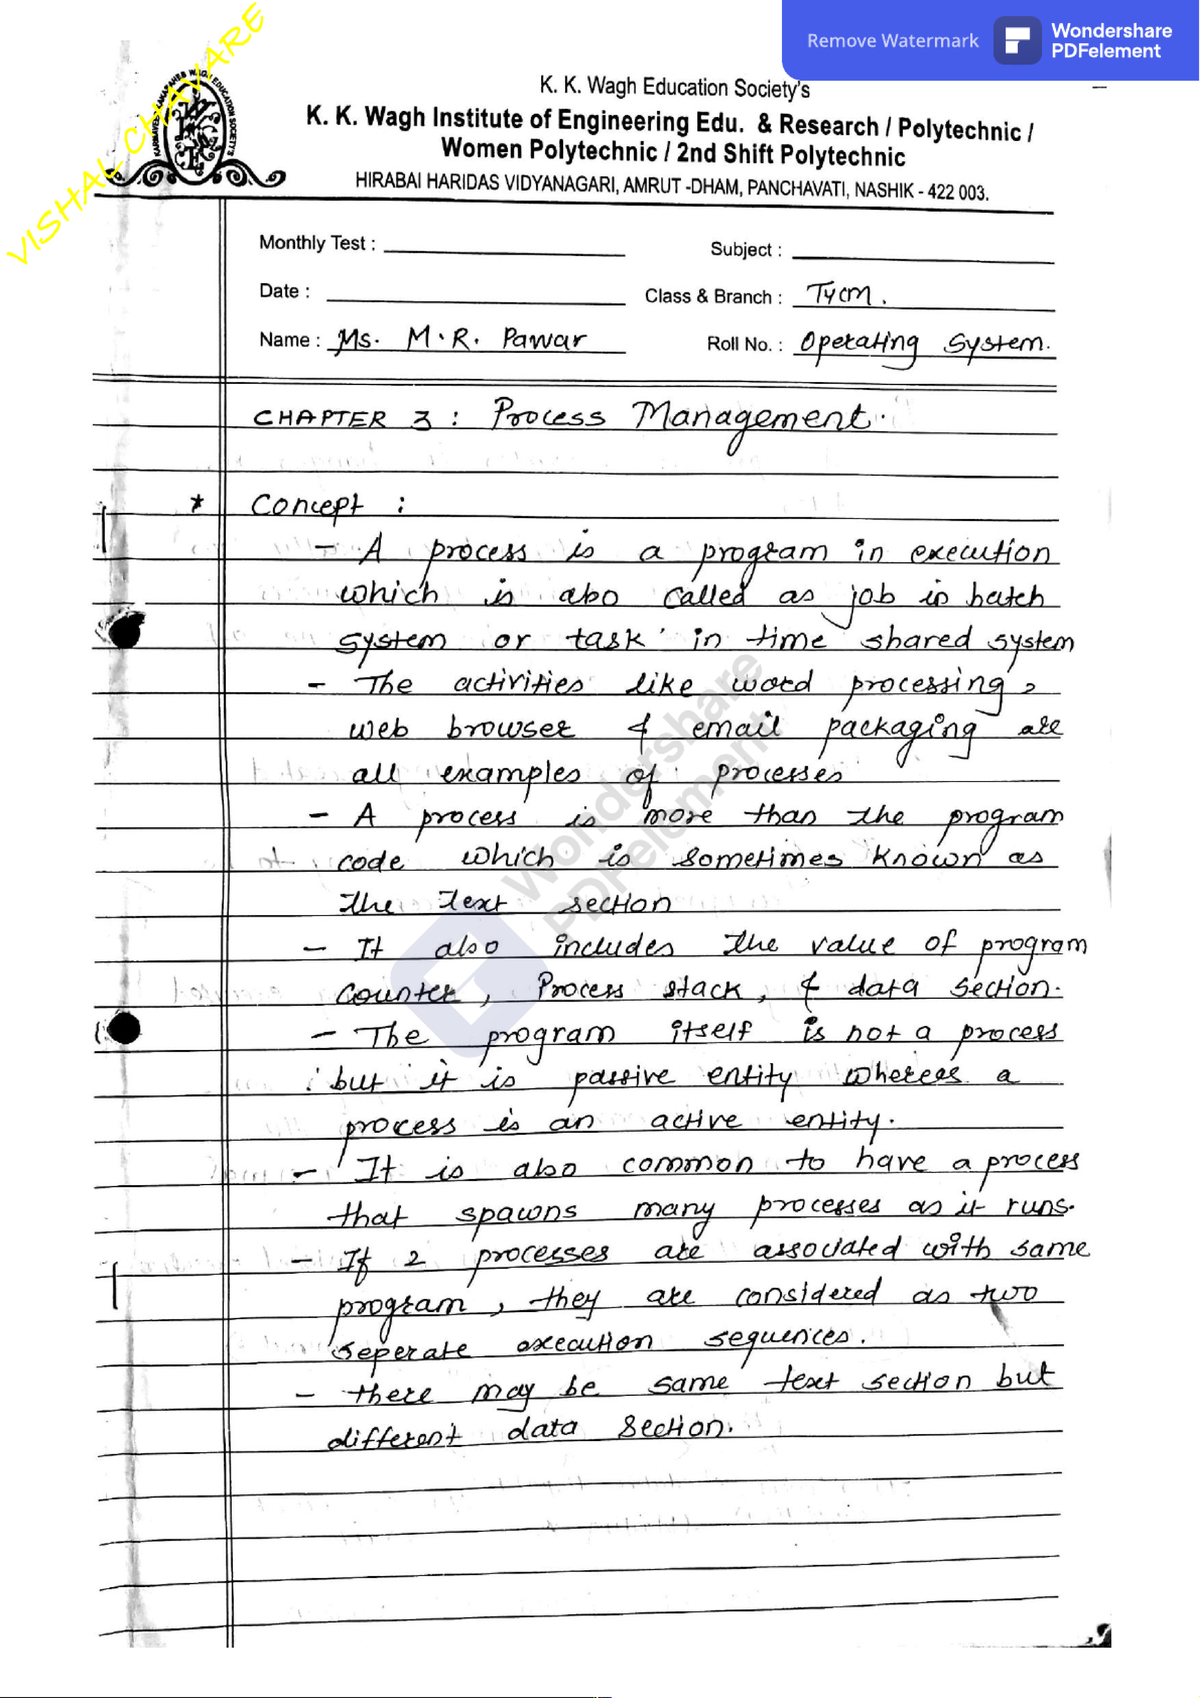 VISHAL CHAVARE
Remove Watermark
Wondershare
PDFelement
KARMAVEER KAKASAHEB WAGH EDUCATION SOCIETY'S
K. K. Wagh Education Society's
K. K. Wagh Institute of Engineering Edu. & Research / Polytechnic /
Women Polytechnic / 2nd Shift Polytechnic
HIRABAI HARIDAS VIDYANAGARI, AMRUT -DHAM, PANCHAVATI, NASHIK - 422 003.
Monthly Test :
Subject :
Date :
Class & Branch : TYCM.
Name : Ms. M.R. Pawar
Roll No. : Operating System.
CHAPTER 3 : Process Management.
* Concept :
- A process is a program in execution
which is also called as job in batch
system or task in time shared system
- The activities like word processing,
web browser & email packaging are
all examples of processes
- A process is more than the program
code which is sometimes known as
the text section
- It also includes the value of program
counter, Process stack, & data section.
- The program itself is not a process
but it is passive entity whereas a
process is an active entity.
- It is also common to have a process
that spawns many processes as it runs.
- If 2 processes are associated with same
program, they are considered as two
seperate execution sequences.
- there may be same text section but
different data section.
Wondershare
PDFelement